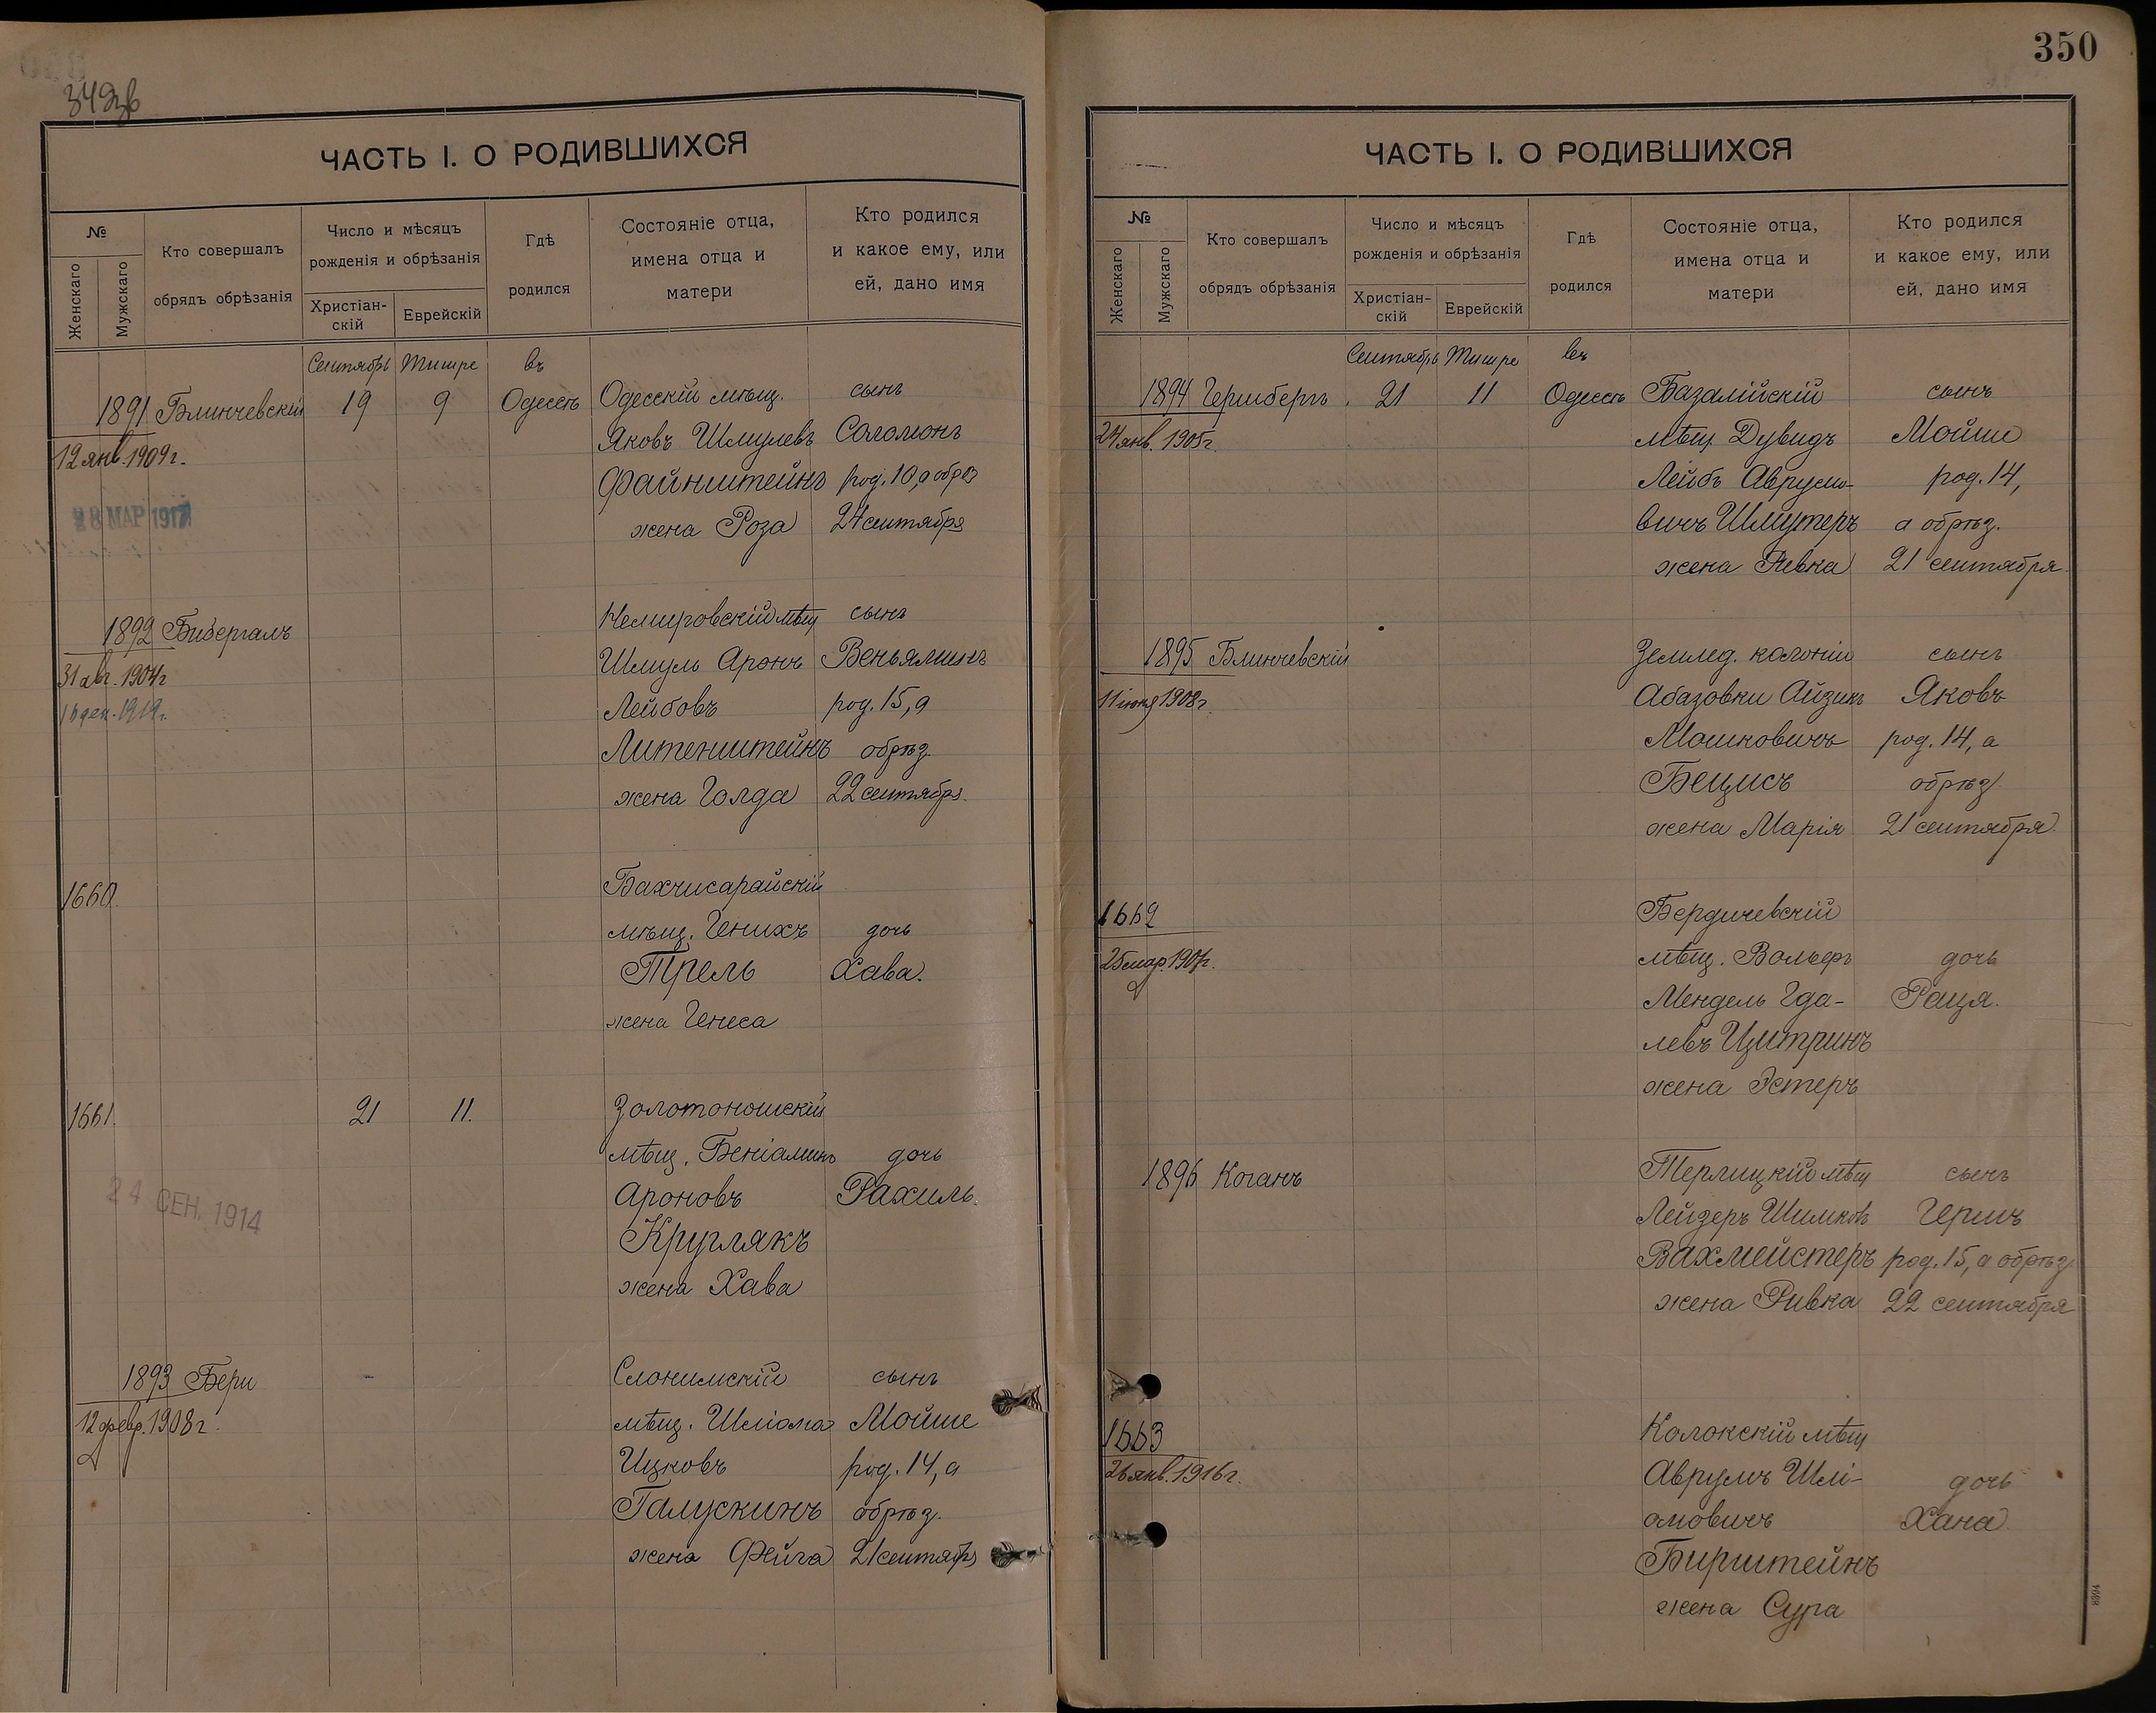 349об
ЧАСТЬ I. О РОДИВШИХСЯ
№
Женскаго
Мужскаго
Кто совершалъ
обрядъ обрѣзанія
Число и мѣсяцъ
рожденія и обрѣзанія
Христіан-
скій
Еврейскій
Гдѣ
родился
Состояніе отца,
имена отца и
матери
Кто родился
и какое ему, или
ей, дано имя
Сентябрь Тишре въ
1891 Блинчевскій 19 9 Одессѣ Одесскій мѣщ. сынъ
12 янв. 1909 г. Яковъ Шмулевъ Соломонъ
Файнштейнъ род. 10, а обрѣз
28 МАР 1917 жена Роза 24 сентября
1892 Бибергалъ Немировскій мѣщ сынъ
31 авг. 1904 г Шмуль Аронъ Веньяминъ
Лейбовъ род. 15, а
Литенштейнъ обрѣз.
жена Голда 22 сентября.
1660 Бахчисарайскій
мѣщ. Генихъ дочь
Трель Хава.
жена Генеса
1661 21 11. Золотоношскій
мѣщ. Беніаминъ дочь
24 СЕН. 1914 Ароновъ Рахиль.
Круглякъ
жена Хава
1893 Бери Слонимскій сынъ
12 февр. 1908 г. мѣщ. Шліома Мойше
Ицковъ род. 14, а
Галускинъ обрѣз.
жена Фейга 21 сентября
350
ЧАСТЬ I. О РОДИВШИХСЯ
№
Женскаго
Мужскаго
Кто совершалъ
обрядъ обрѣзанія
Число и мѣсяцъ
рожденія и обрѣзанія
Христіан-
скій
Еврейскій
Гдѣ
родился
Состояніе отца,
имена отца и
матери
Кто родился
и какое ему, или
ей, дано имя
Сентябрь Тишре въ
1894 Гершбергъ 21 11 Одессѣ Базалійскій сынъ
24 янв. 1905 г. мѣщ. Дувидъ Мойше
Лейбъ Аврумо- род. 14,
вичъ Шмутеръ а обрѣз.
жена Ривка 21 сентября
1895 Блинчевскій Землед. колоніи сынъ
11 іюня 1908 г. Абазовки Айзикъ Яковъ
Мошковичъ род. 14, а
Бецисъ обрѣз
жена Марія 21 сентября
1662 Бердичевскій
25 мар. 1907 г. мѣщ. Вольфъ дочь
Мендель Гда- Раця.
левъ Цитринъ
жена Эстеръ
1896 Коганъ Терлицкій мѣщ сынъ
Лейзеръ Шимковъ Гершъ
Вахмейстеръ род. 15, а обрѣз
жена Ривка 22 сентября
1663 Колокскій мѣщ
26 янв. 1916 г. Аврумъ Шлі- дочь
омовичъ Хана
Бирштейнъ
жена Сура
8394